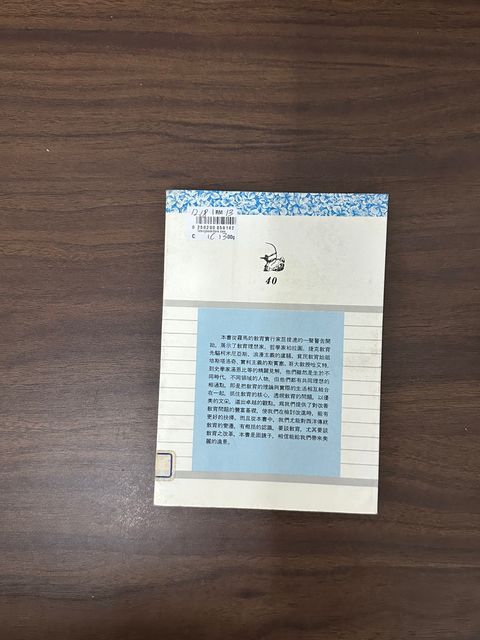 RM 13
40
本書從羅馬的教育實行家昆提連的一聲警告開
始，展示了教育理想家、哲學家柏拉圖，捷克教育
先驅柯米尼亞斯，浪漫主義的盧騷，貧民教育始祖
培斯塔洛奇，實利主義的斯賓塞，哥大教授哈艾特，
到史學家湯恩比等的精闢見解，他們雖然是生於不
同時代，不同領域的人物，但他們都有共同理想的
相通點，即是把教育的理論與實際的生活相互結合
在一起，抓住教育的核心，透視教育的問題，以優
美的文采，道出卓越的觀點，爲我們提供了對改善
教育問題的豐富基礎，使我們在檢討改進時，能有
更好的抉擇。而且從本書中，我們尤能對西洋傳統
教育的變遷，有概括的認識，要談教育，尤其要談
教育之改革，本書是面鏡子，相信能給我們帶來美
麗的遠景。